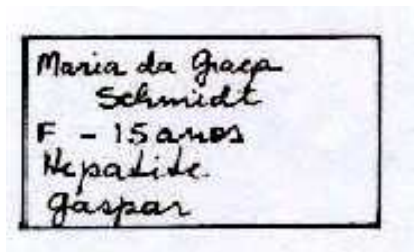 Maria da Graça
Schmidt
F - 15 anos
Hepatite
Gaspar